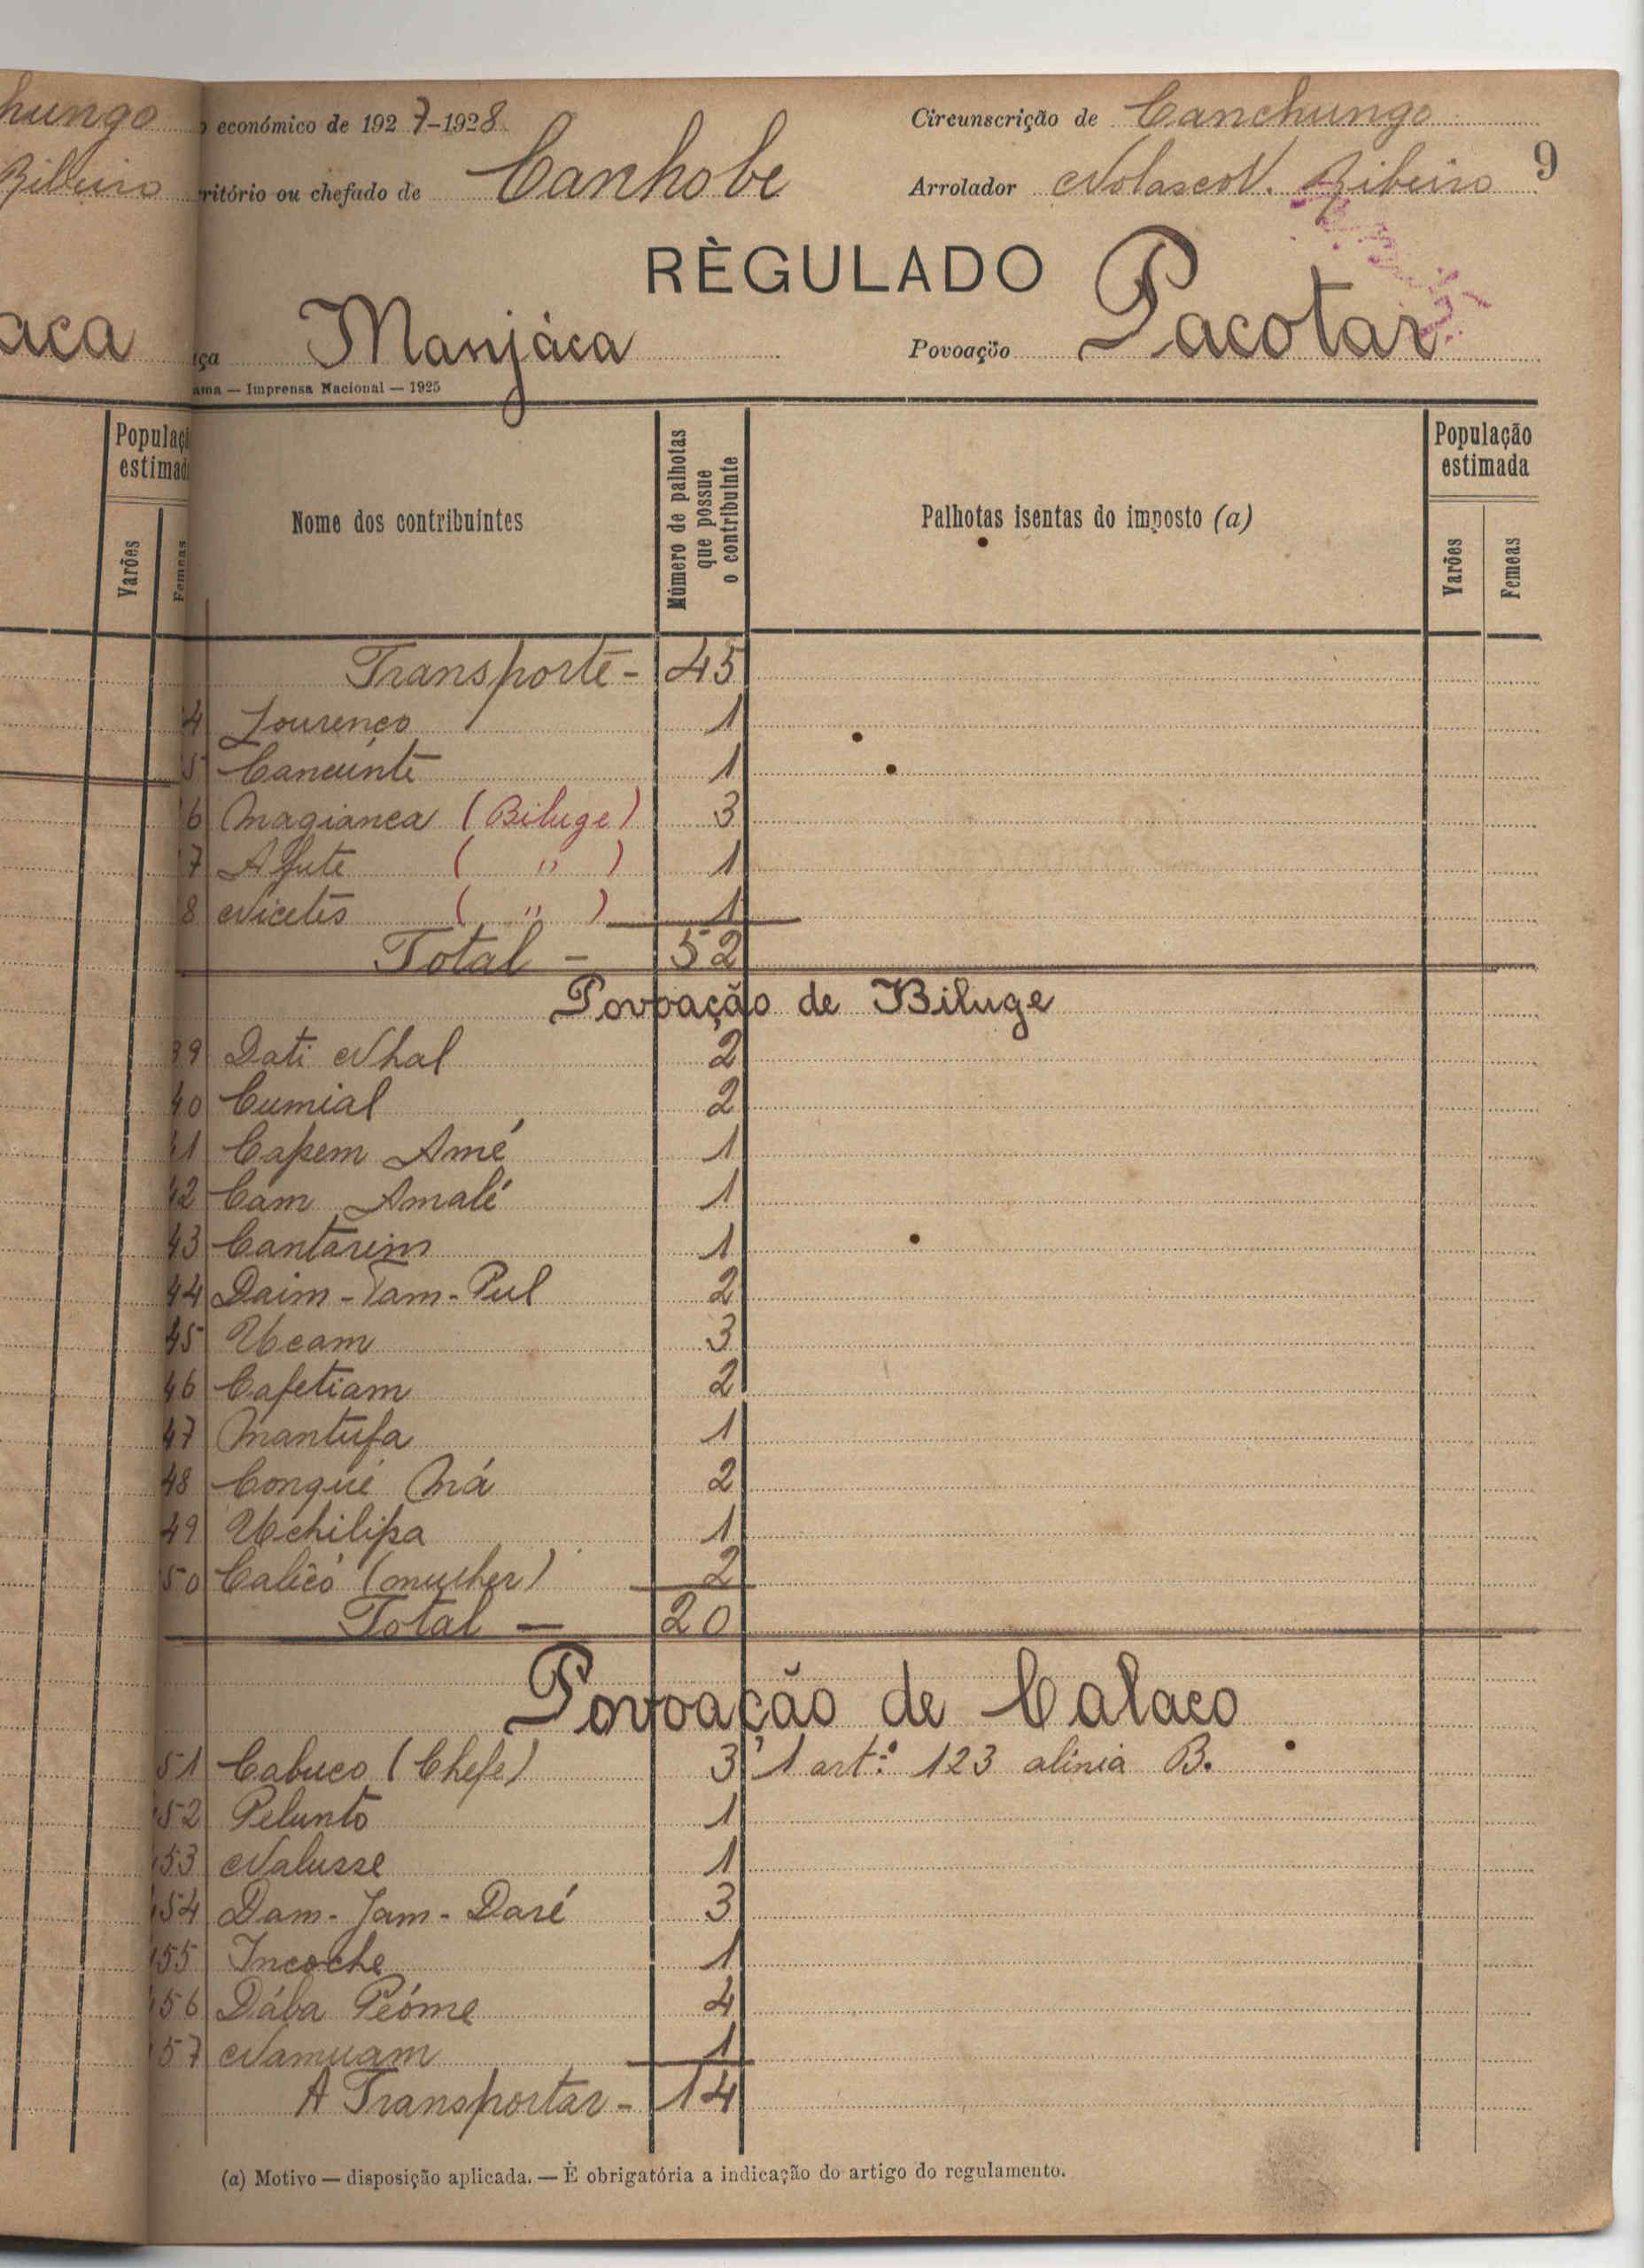 hungo
Bibeiro
aca
Populaç
estimad
Varões
Femeas
económico de 1927-1928
Circunscrição de Canchungo
9
ritório ou chefado de Canhobe
Arrolador Nolasco N. Ribeiro
RÈGULADO
ça Manjáca
Povoação Pacotar
ama — Imprensa Nacional — 1925
Nome dos contribuintes
Número de palhotas que possue o contribuinte
Palhotas isentas do imposto (a)
População estimada
Varões
Femeas
Transporte - 45
4 Lourenço 1
5 Cancunte 1
6 Magianca (Biluge) 3
7 Afute ( " ) 1
8 Nicetes ( " ) 1
Total - 52
Povoação de Biluge
39 Dati Nhal 2
40 Cumial 2
41 Capem Amé 1
42 Cam Amalé 1
43 Cantarim 1
44 Daim-Tam-Pul 2
45 Ucam 3
46 Cafetiam 2
47 Mantufa 1
48 Conqué Má 2
49 Uchilipa 1
50 Calicó (mulher) 2
Total — 20
Povoação de Calaco
51 Cabuco (Chefe) 3 1 art.º 123 alínia B.
52 Pelunto 1
153 Nalusse 1
154 Dam-Jam-Daré 3
155 Incoche 1
156 Dába Peóme 4
157 Namuam 1
A Transportar - 14
(a) Motivo — disposição aplicada. — É obrigatória a indicação do artigo do regulamento.